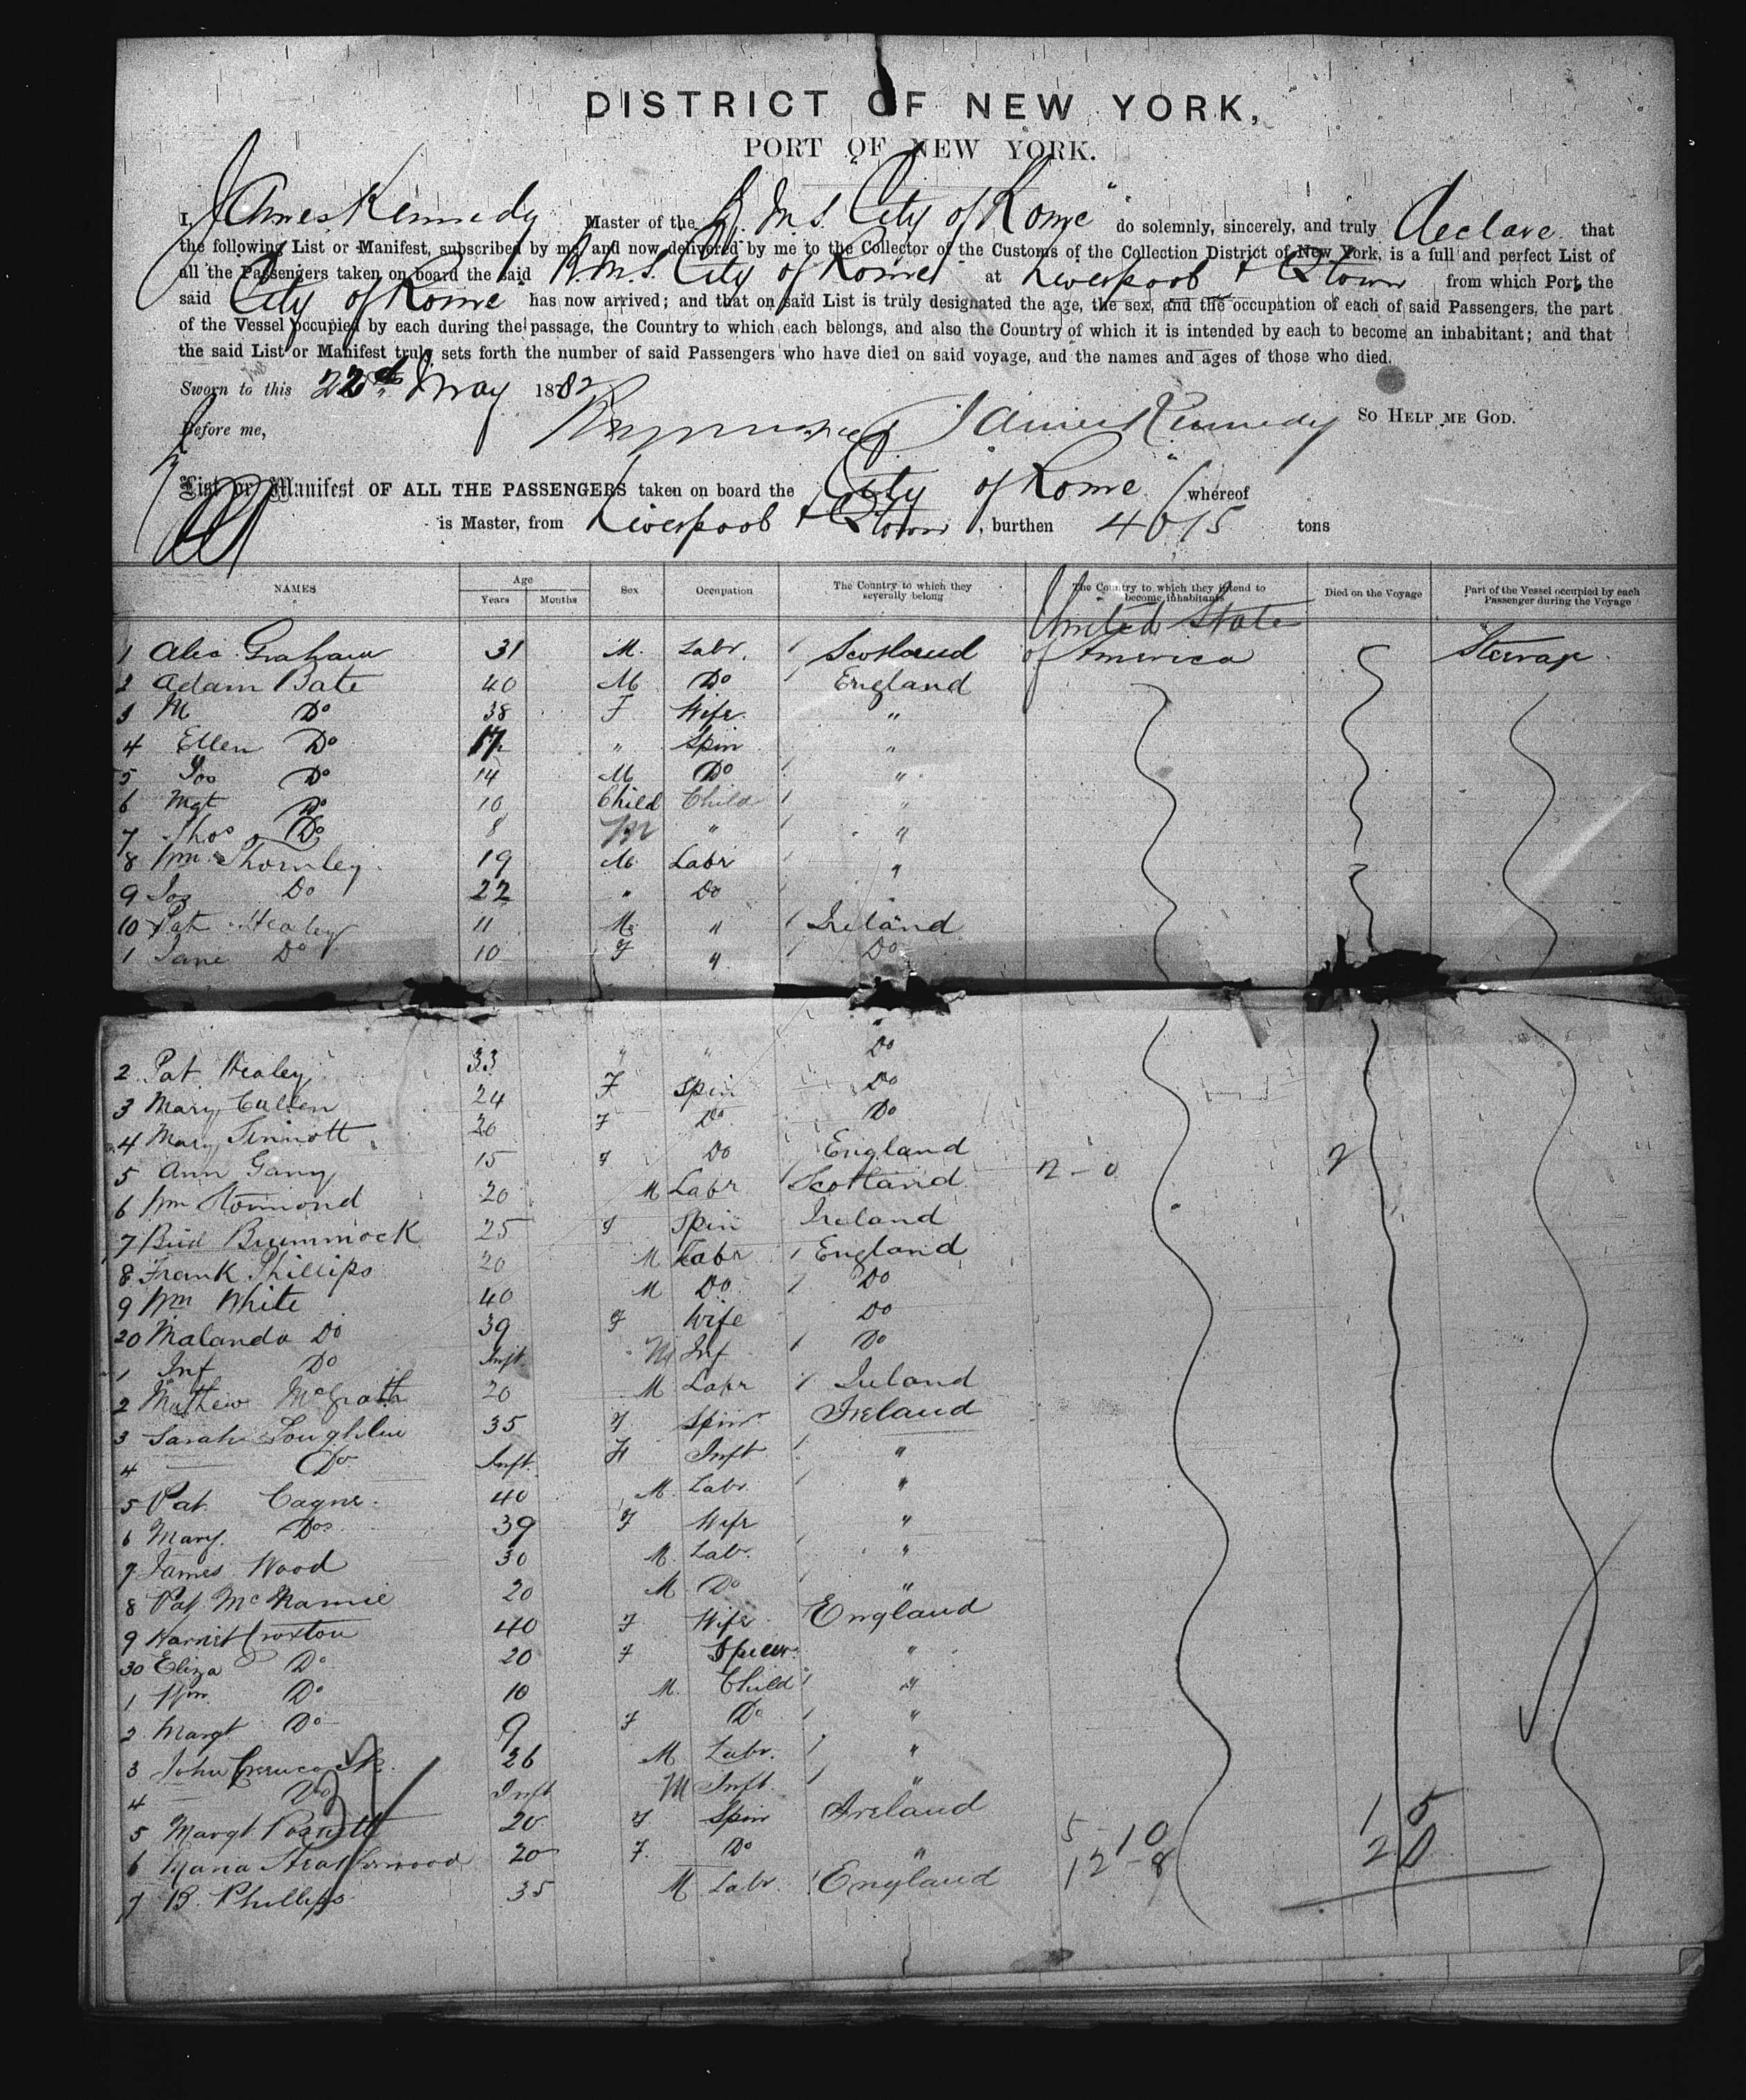 DISTRICT OF NEW YORK,
PORT OF NEW YORK.
I, James Kennedy Master of the R.M.S. "City of Rome" do solemnly, sincerely, and truly declare that
the following List or Manifest, subscribed by me, and now delivered by me to the Collector of the Customs of the Collection District of New York, is a full and perfect List of
all the Passengers taken on board the said R.M.S. City of Rome at Liverpool & Qtown from which Port, the
said City of Rome has now arrived; and that on said List is truly designated the age, the sex, and the occupation of each of said Passengers, the part
of the Vessel occupied by each during the passage, the Country to which each belongs, and also the Country of which it is intended by each to become an inhabitant; and that
the said List or Manifest truly sets forth the number of said Passengers who have died on said voyage, and the names and ages of those who died.
Sworn to this 22d May 1882
Before me, James Kennedy So Help me God.
List or Manifest OF ALL THE PASSENGERS taken on board the "City of Rome" whereof
is Master, from Liverpool & Qtown, burthen 4015 tons
NAMES Age Years Months Sex Occupation The Country to which they severally belong The Country to which they intend to become inhabitants Died on the Voyage Part of the Vessel occupied by each Passenger during the Voyage
1 Alec Graham 31 M. Labr. Scotland United State of America Steerage
2 Adam Bate 40 M Do England
3 M Do 38 F Wife "
4 Ellen Do 17 " Spin "
5 Jos Do 14 M Do "
6 Mgt Do 10 Child Child "
7 Thos Do 8 M " "
8 Wm Thornley 19 M Labr "
9 Jos Do 22 " Do
10 Pat Healey 11 M " Ireland
1 Jane Do 10 F " Do
2 Pat Healey 33 " " Do
3 Mary Cullen 24 F Spin Do
4 Mary Sinnott 20 F Do Do
5 Ann Gany 15 F Do England
6 Wm Stormond 20 M Labr Scotland 12-0 2
7 Brid Brummock 25 F Spin Ireland
8 Frank Phillips 20 M Labr England
9 Wm White 40 M Do Do
20 Malanda Do 39 F Wife Do
1 Inf Do Inft M Inf Do
2 Mathew McGrath 20 M Labr Ireland
3 Sarah Loughlin 35 F Spinr Ireland
4 — Do Inft F Inft "
5 Pat Cagne 40 M Labr "
6 Mary Do 39 F Wife "
7 James Wood 30 M Labr. "
8 Pat McNamie 20 M Do "
9 Harriet Croxton 40 F Wife England
30 Eliza Do 20 F Spinr "
1 Wm Do 10 M. Child "
2 Margt Do 9 F Do "
3 John 26 M Labr. "
4 — Do Inft M Inft "
5 Margt 20 F Spin Ireland
6 Maria 20 F. Do "
7 B. Phillips 35 M Labr England
37
5 10
12-8
15
20